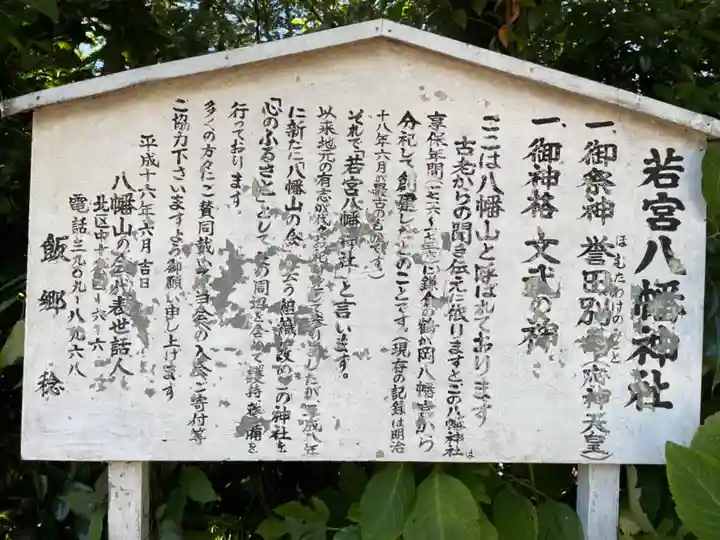 若宮八幡神社
一、御祭神 誉田別 神天皇)
ほむたわけの
一、御神格 文武の神
ここは八幡山と呼ばれております
古老からの聞き伝えに依りますとこの八幡神社は
享保年間 に鎌倉の鶴が岡八幡宮から
分祀して創建したとのことです。(現存の記録は明治
十八年六月が最古のものです)
それで「若宮八幡神社」と言います。
以来地元の有志が代々お 八年
に新たに「八幡山の会」 組織 改め この神社を
「心のふるさと」として 周辺を含めて護持整備を
行っております。
多くの方々にご賛同戴いて当会への入会、ご寄付等
ご協力下さいますようお御願い申し上げます
平成十六年六月吉日
八幡山の会代表世話人
北区中十条 六
電話三九〇九-八九六八
飯郷 稔